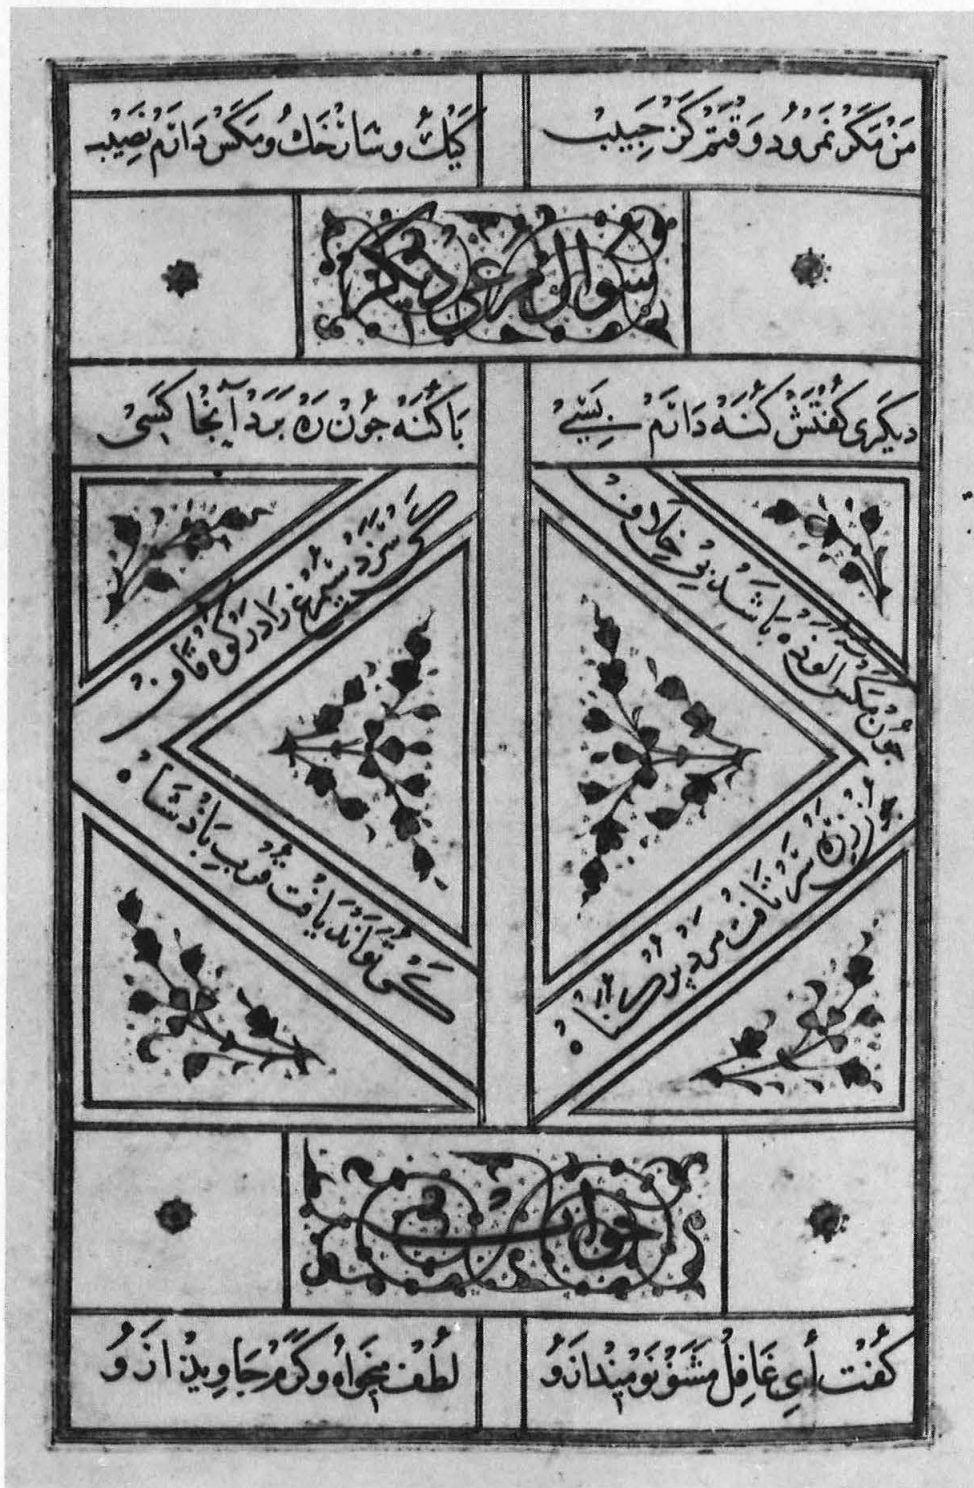 من مکر نمرود وقتم کز حبیب
کیک و شارخک و مکس دارم نصیب
سوال مرغی دیکر
دیکری کفتش کنه دارم بسی
با کنه جون ره برد آنجا کسی
جون مکس الوده باشد بی خلاف
کی سزد سیمرغ را در کوه قاف
جون ز ره سر تافت مرد پر کناه
کی تواند یافت قرب پادشاه
جواب
کفت ای غافل مشو نومید ازو
لطف میخواه و کرم جاوید ازو